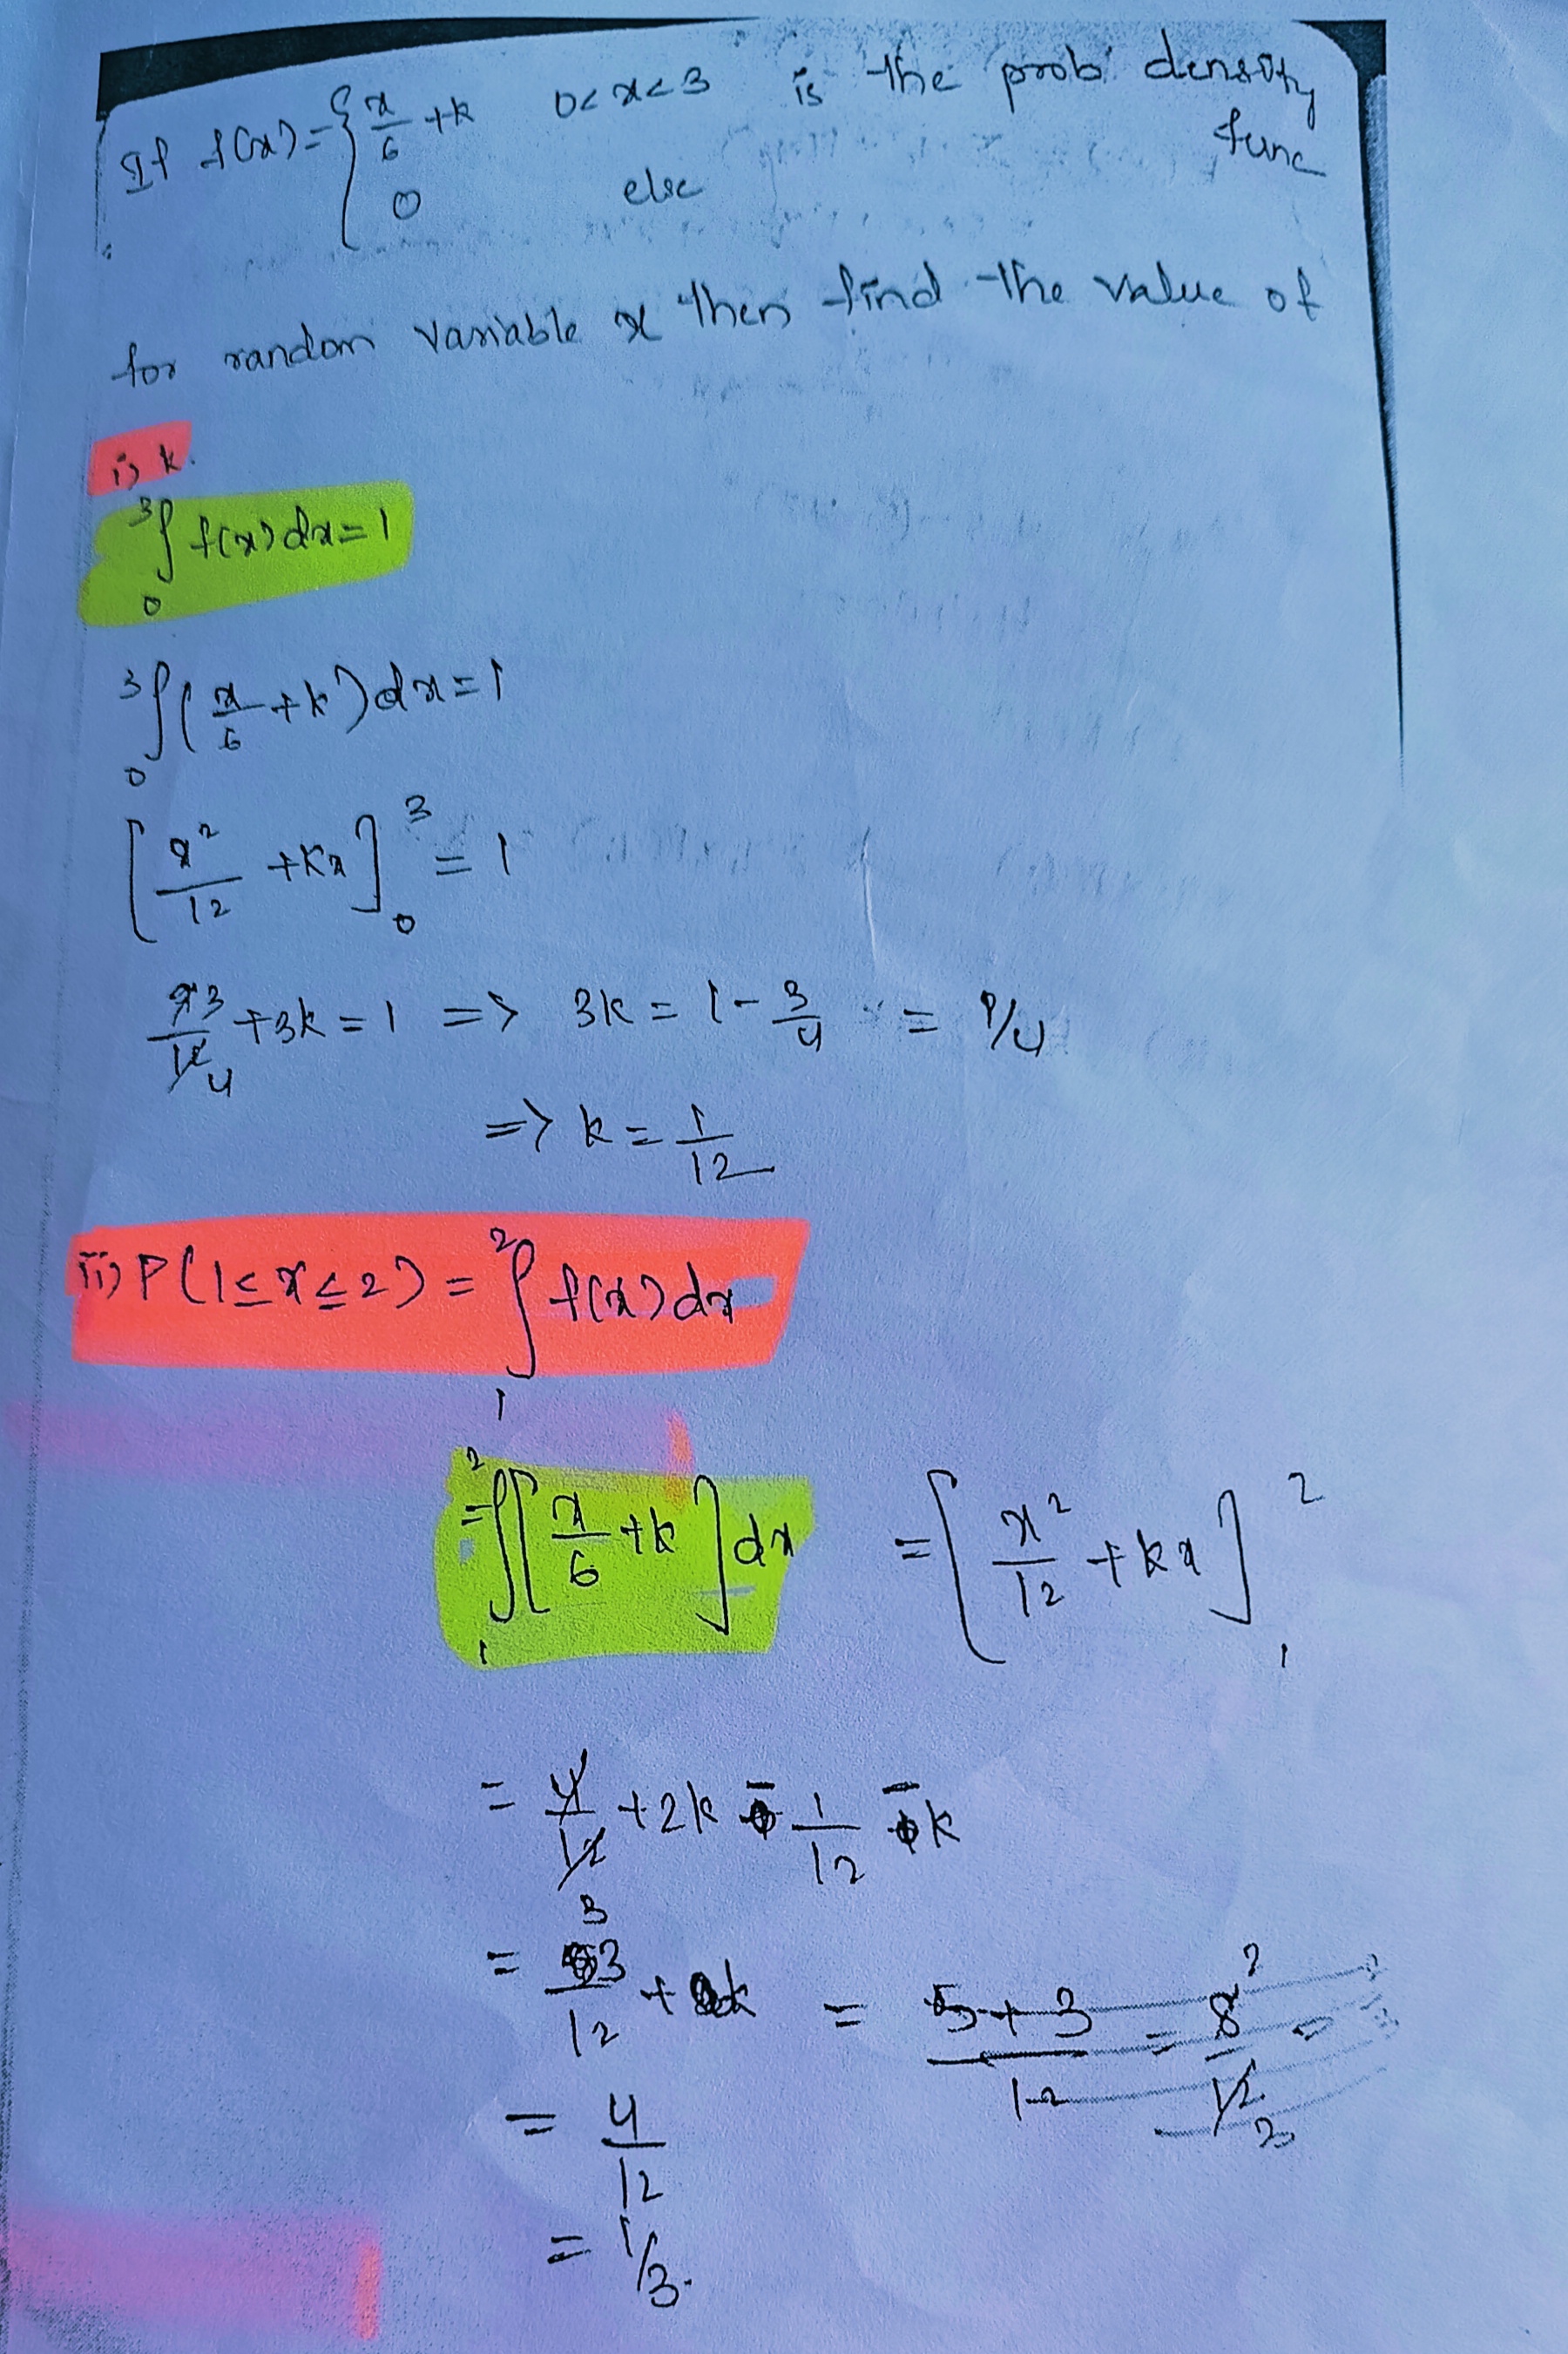 If f(x) = { x/6 + k 0<x<3 is the prob. density func
0 else
for random variable x then find the value of
i) k.
³∫₀ f(x)dx = 1
³∫₀ (x/6 + k)dx = 1
[x²/12 + kx]³₀ = 1
3/4 + 3k = 1 => 3k = 1 - 3/4 = 1/4
=> k = 1/12
ii) P(1≤x≤2) = ²∫₁ f(x)dx
= ²∫₁ [x/6 + k]dx = [x²/12 + kx]²₁
= 4/12 + 2k - 1/12 - k
3
= 3/12 + k = 5+3/12 = 8/12 =
= 4/12
= 1/3.